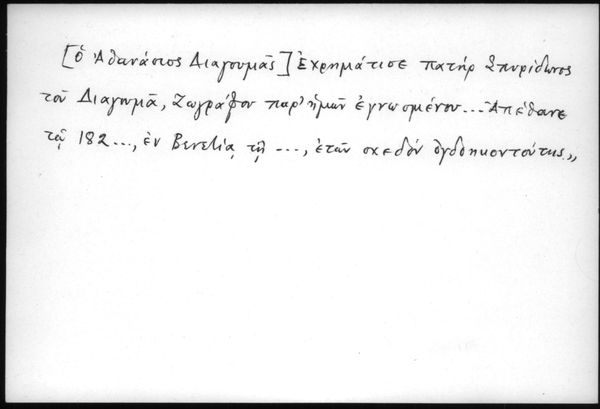 [ὁ Ἀθανάσιος Διαγουμᾶς] Ἐχρημάτισε πατὴρ Σπυρίδωνος
τοῦ Διαγουμᾶ, Ζωγράφου παρ' ἡμῶν ἐγνωσμένου... Ἀπέθανε
τῷ 182..., ἐν Βενετίᾳ τῇ ..., ἐτῶν σχεδὸν ὀγδοηκοντούτης.»